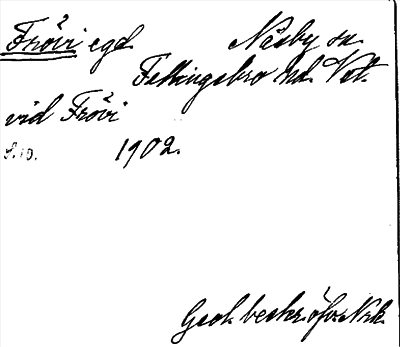 Frövi egd. Näsby sn
Fellingsbro hd. Vstm.
vid Frövi
S. 10. 1902.
Geol. beskr. öfver Nrk.